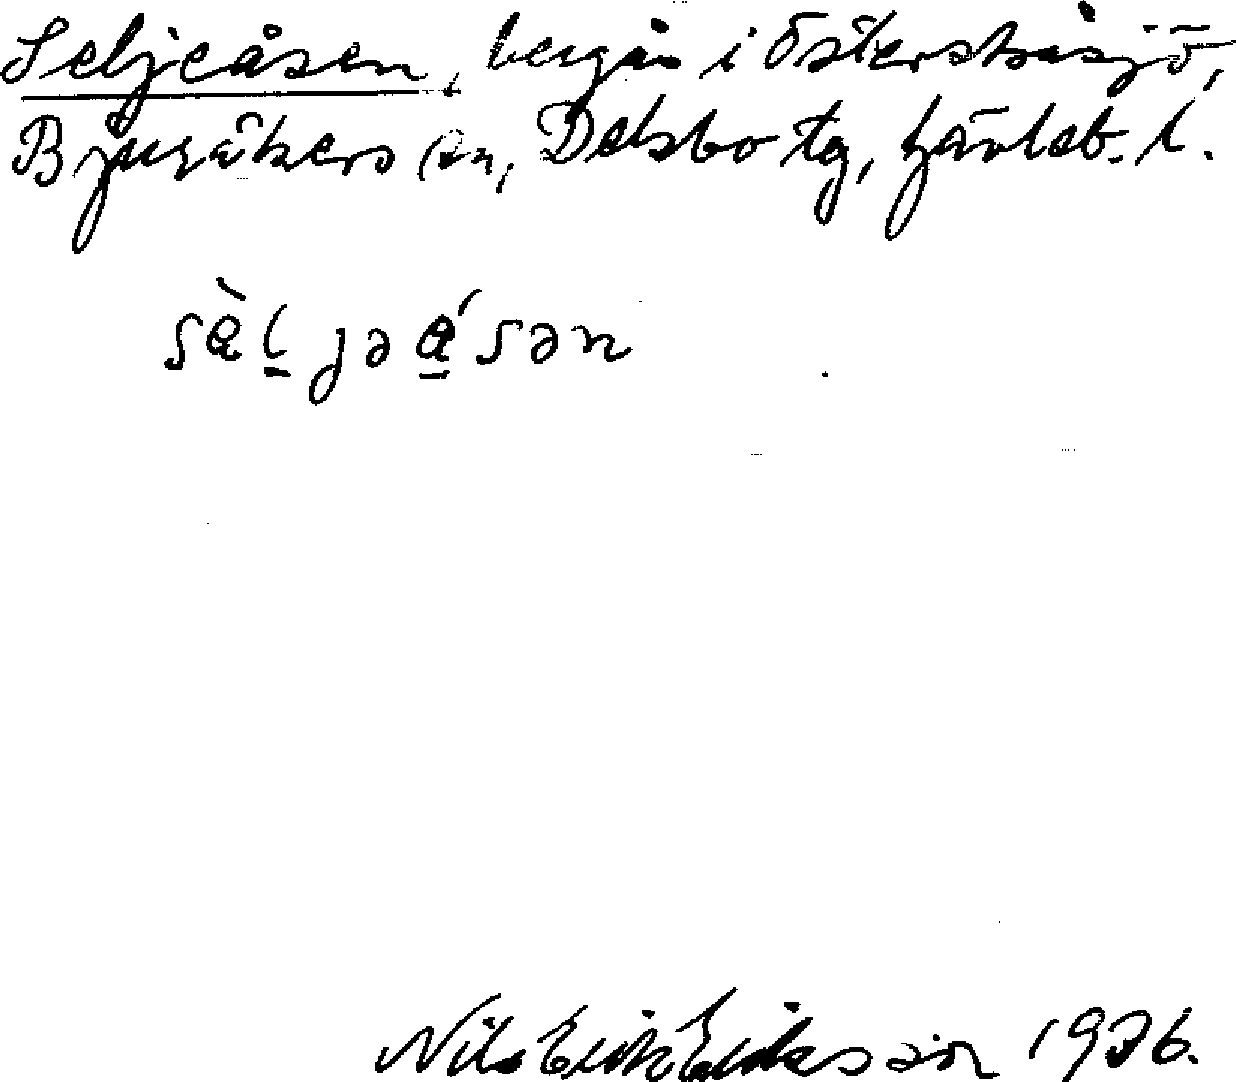 Seljeåsen, bergås i Österstråsjö,
Bjuråkers sn, Delsbo tg, Gävleb. l.
sæ̀l̠jəǻ̠sən
Nils Erik Eriksson 1936.